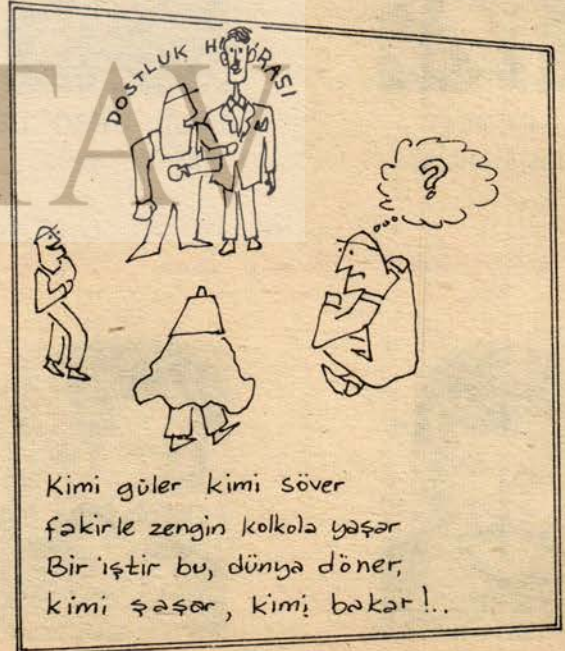 DOSTLUK HATIRASI
?
Kimi güler kimi söver
fakirle zengin kolkola yaşar
Bir iştir bu, dünya döner,
kimi şaşar, kimi bakar!..
TAV